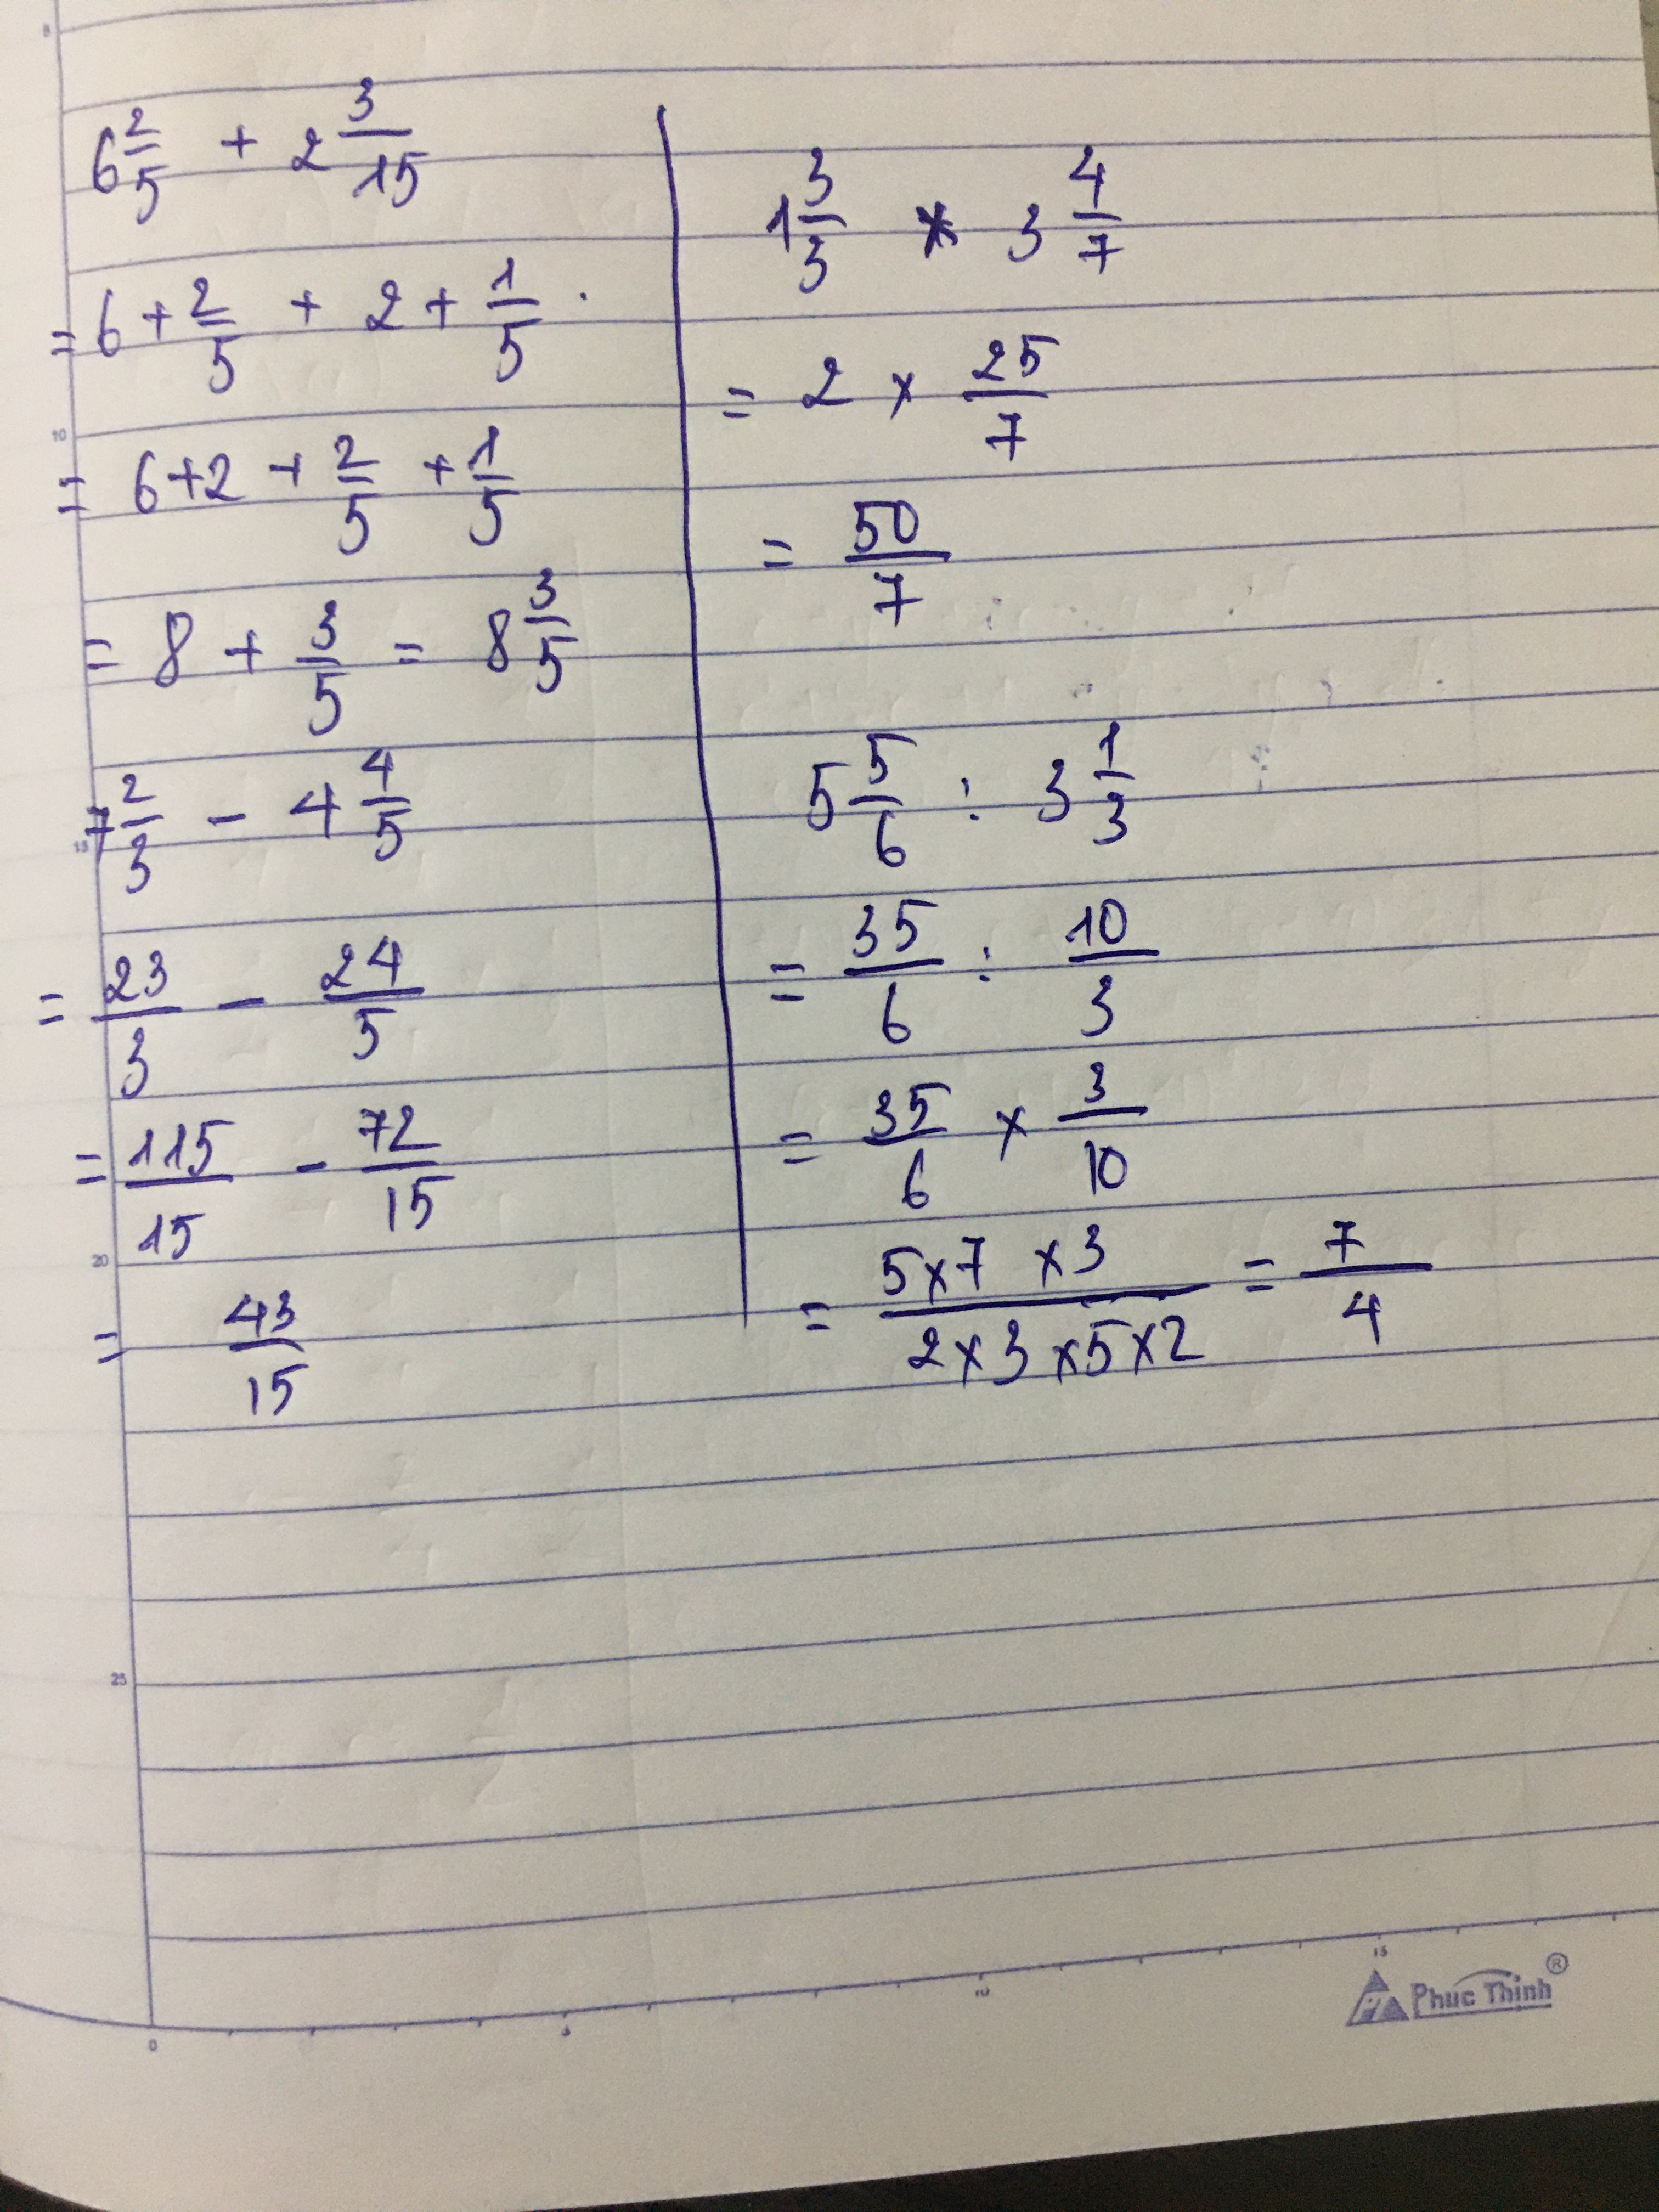 6 2/5 + 2 3/15
= 6 + 2/5 + 2 + 1/5 .
= 6+2 + 2/5 + 1/5
= 8 + 3/5 = 8 3/5
7 2/3 - 4 4/5
= 23/3 - 24/5
= 115/15 - 72/15
= 43/15
1 3/3 * 3 4/7
= 2 × 25/7
= 50/7
5 5/6 : 3 1/3
= 35/6 : 10/3
= 35/6 × 3/10
= 5×7×3/2×3×5×2 = 7/4
8
10
15
20
25
0
5
10
15
Phuc Thinh ®